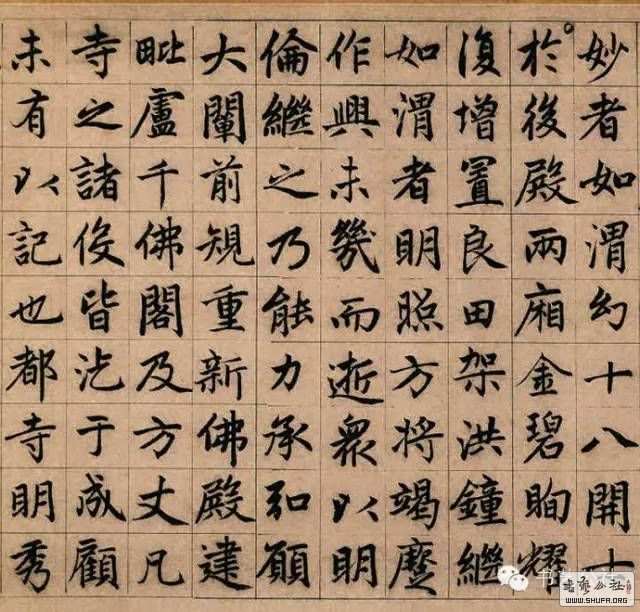 妙者如渭幻十八開士
於後殿兩廂金碧眴耀
復增置良田架洪鐘繼
如渭者明照方將竭麼
作興未幾而逝衆以明
倫繼之乃能力承和願
大闡前規重新佛殿建
毗盧千佛閣及方丈凡
寺之諸役皆汔于成顧
未有以記也都寺明秀
书艺公社
书艺公社
WWW.SHUFA.ORG